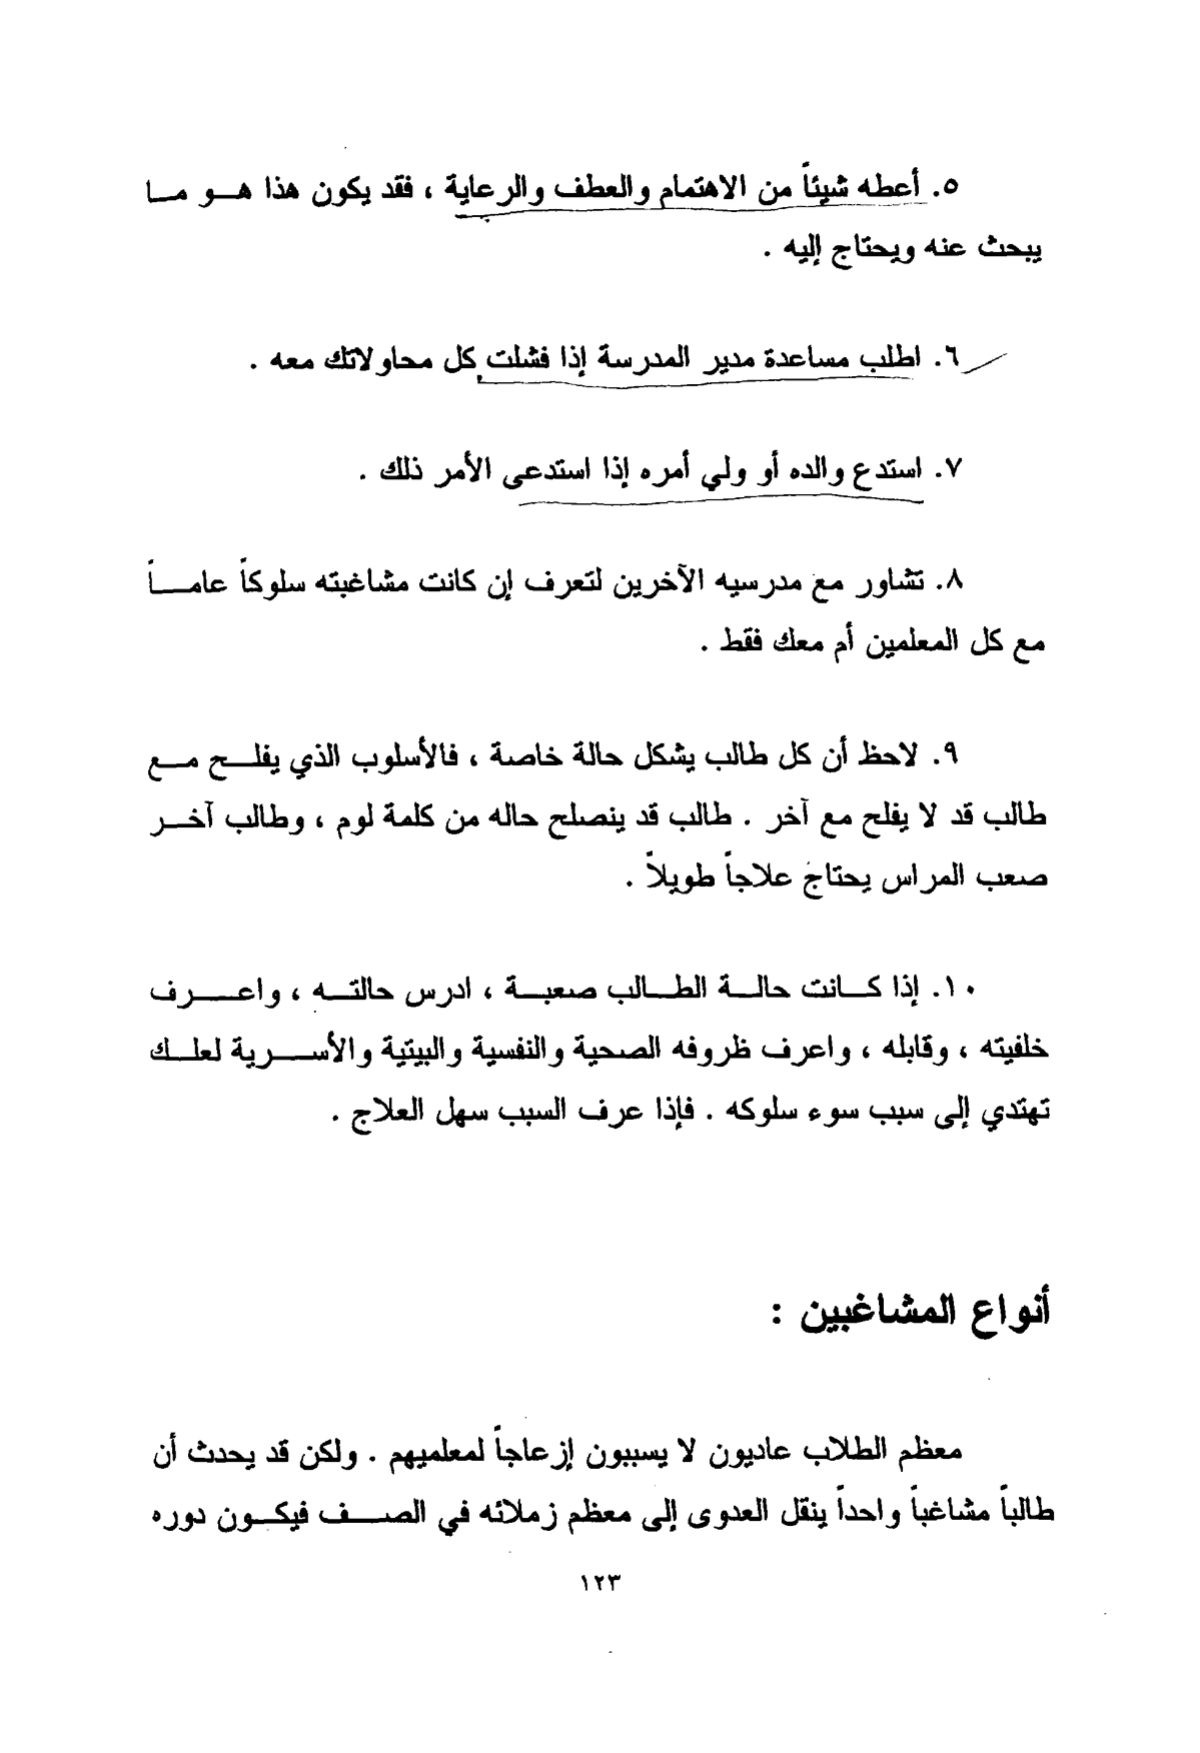 ٥. أعطه شيئاً من الاهتمام والعطف والرعاية ، فقد يكون هذا هو ما
يبحث عنه ويحتاج إليه .
٦. اطلب مساعدة مدير المدرسة إذا فشلت كل محاولاتك معه .
٧. استدع والده أو ولي أمره إذا استدعى الأمر ذلك .
٨. تشاور مع مدرسيه الآخرين لتعرف إن كانت مشاغبته سلوكاً عاماً
مع كل المعلمين أم معك فقط .
٩. لاحظ أن كل طالب يشكل حالة خاصة ، فالأسلوب الذي يفلح مع
طالب قد لا يفلح مع آخر . طالب قد ينصلح حاله من كلمة لوم ، وطالب آخر
صعب المراس يحتاج علاجاً طويلاً .
١٠. إذا كانت حالة الطالب صعبة ، ادرس حالته ، واعرف
خلفيته ، وقابله ، واعرف ظروفه الصحية والنفسية والبيتية والأسرية لعلك
تهتدي إلى سبب سوء سلوكه . فإذا عرف السبب سهل العلاج .
أنواع المشاغبين :
معظم الطلاب عاديون لا يسببون إزعاجاً لمعلميهم . ولكن قد يحدث أن
طالباً مشاغباً واحداً ينقل العدوى إلى معظم زملائه في الصف فيكون دوره
١٢٣